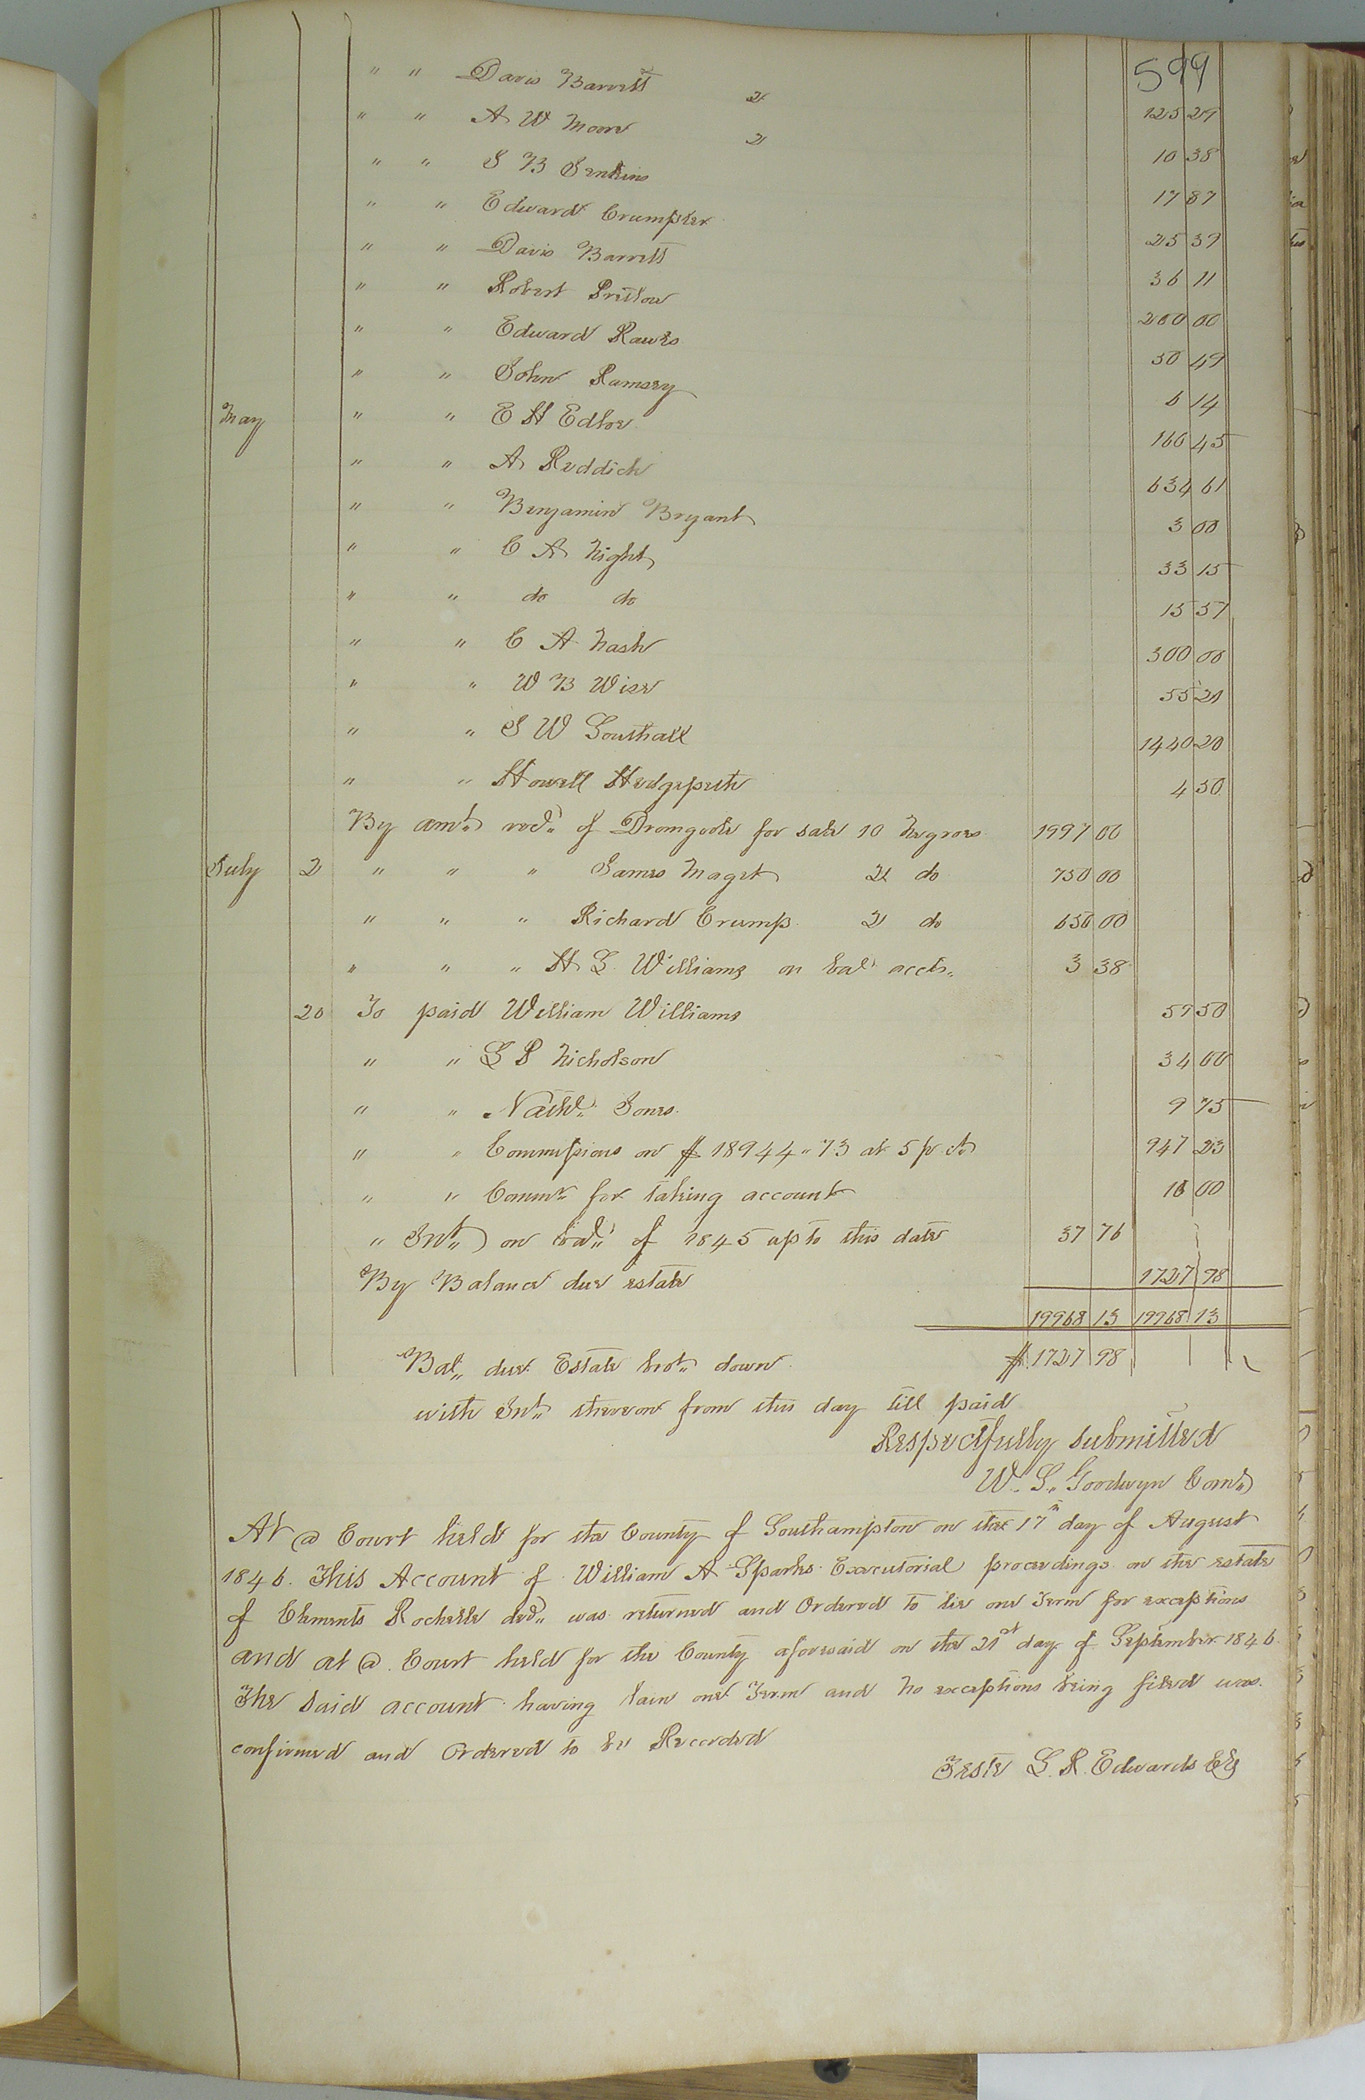 599
" " Davis Barrett 2 125 29
" " A W Moore 2 10 38
" " S B Jenkins 17 87
" " Edward Crumpler 25 39
" " Davis Barrett 36 11
" " Robert Pretlow 200 00
" " Edward Rawls 50 49
" " John Ramsey 6 14
May " " E H Edloe 166 45
" " A Riddick 634 61
" " Benjamin Bryant 3 00
" " C A Night 33 15
" " do do 15 57
" " C A Nash 300 00
" " W B Wise 55 21
" " J W Southall 1440 20
" " Howell Hedgepeth 4 50
By amt recd of Dromgoole for sale 10 Negroes 1997 00
July 2 " " " James Maget 2 do 750 00
" " " Richard Crump 2 do 650 00
" " " H L Williams on bal accts 3 38
20 To paid William Williams 59 50
" " L P Nicholson 34 00
" " Nathl Jones 9 75
" " Commissions on $18944"73 at 5 pr ct 947 23
" " Commr for taking account 10 00
" Int on bal of 1845 up to this date 37 76
By Balance due estate 1727 98
19968 13 19968 13
Bal due Estate brot down $1727 98
with Int thereon from this day till paid
Respectfully submitted
W. S. Goodwyn Comr
At a Court held for the County of Southampton on the 17th day of August
1846. This Account of William A Sparks Executorial proceedings on the estate
of Clements Rochelle decd was returned and Ordered to lie one Term for exceptions
and at a Court held for the County aforesaid on the 21st day of September 1846.
The said account having lain one Term and no exceptions being filed was
confirmed and Ordered to be Recorded
Teste L. R. Edwards Clk